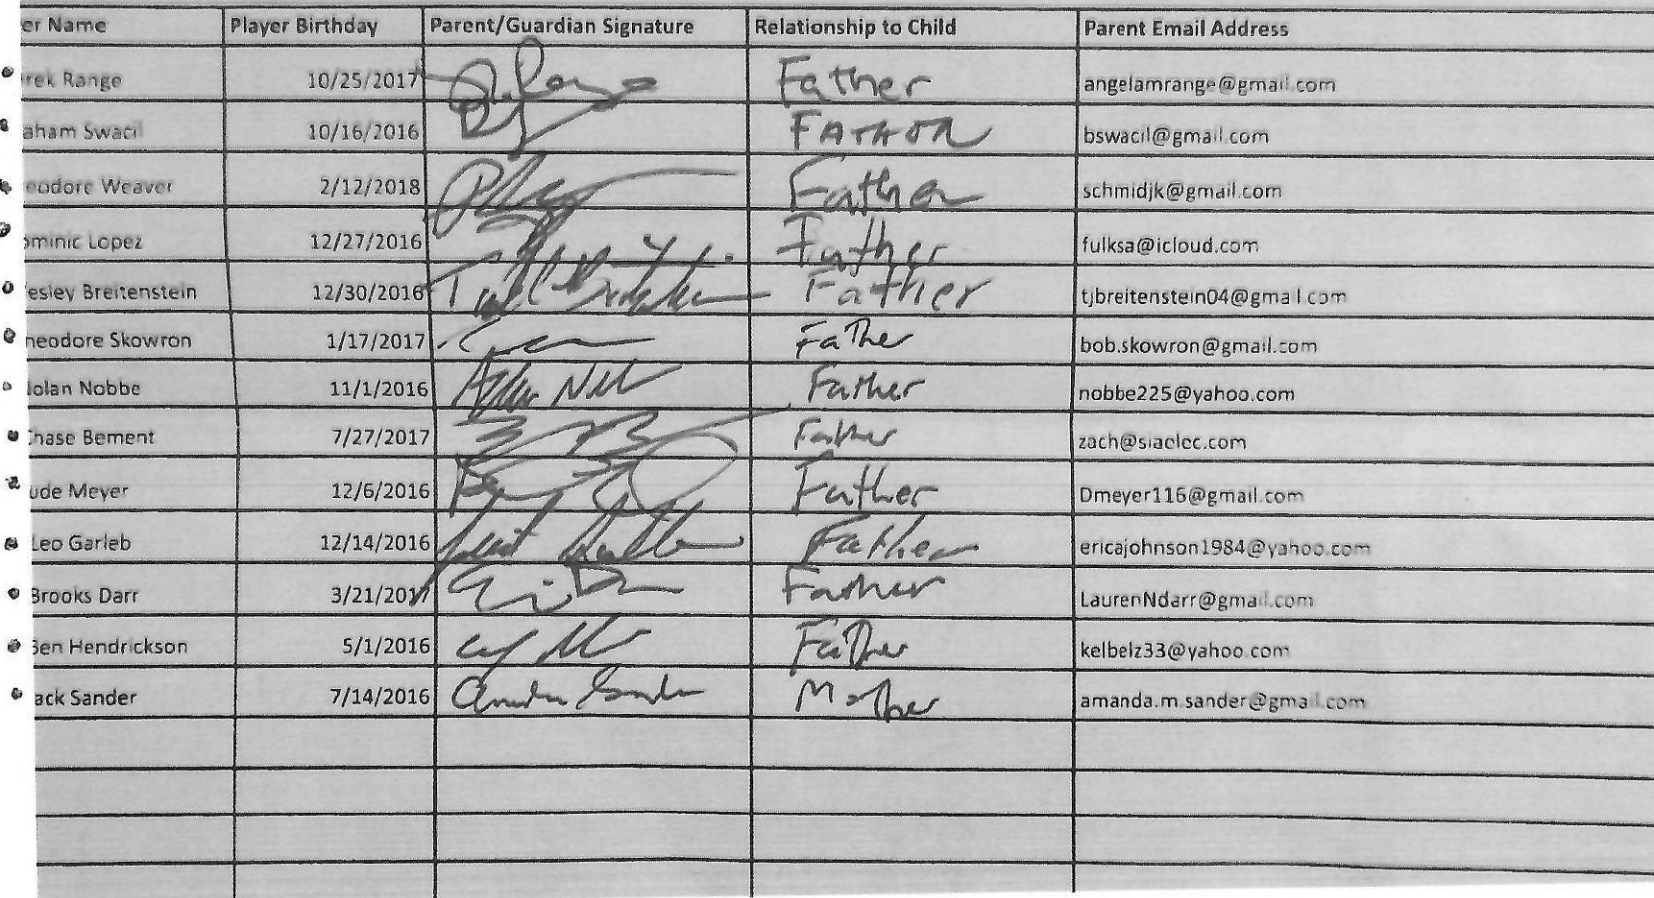 er Name Player Birthday Parent/Guardian Signature Relationship to Child Parent Email Address
rek Range 10/25/2017 Father angelamrange@gmail.com
aham Swacil 10/16/2016 FATHER bswacil@gmail.com
eodore Weaver 2/12/2018 Father schmidjk@gmail.com
ominic Lopez 12/27/2016 Father fulksa@icloud.com
esley Breitenstein 12/30/2016 Father tjbreitenstein04@gmail.com
heodore Skowron 1/17/2017 Father bob.skowron@gmail.com
olan Nobbe 11/1/2016 Father nobbe225@yahoo.com
Chase Bement 7/27/2017 Father zach@siaelec.com
ude Meyer 12/6/2016 Father Dmeyer116@gmail.com
Leo Garleb 12/14/2016 Father ericajohnson1984@yahoo.com
Brooks Darr 3/21/2017 Father LaurenNdarr@gmail.com
Ben Hendrickson 5/1/2016 Father kelbelz33@yahoo.com
ack Sander 7/14/2016 Amanda Sander Mother amanda.m.sander@gmail.com